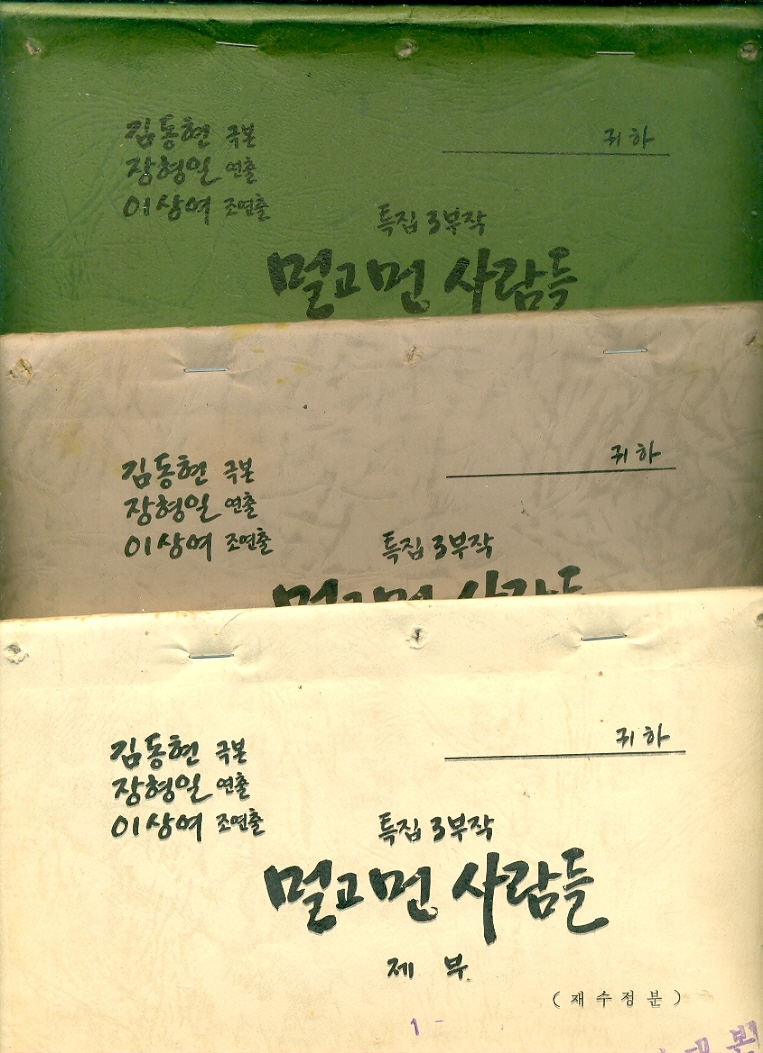 김동현 극본
장형일 연출
이상여 조연출
귀하
특집 3부작
멀고 먼 사람들
김동현 극본
장형일 연출
이상여 조연출
귀하
특집 3부작
멀고 먼 사람들
김동현 극본
장형일 연출
이상여 조연출
귀하
특집 3부작
멀고 먼 사람들
제 부
(재수정분)
1 -